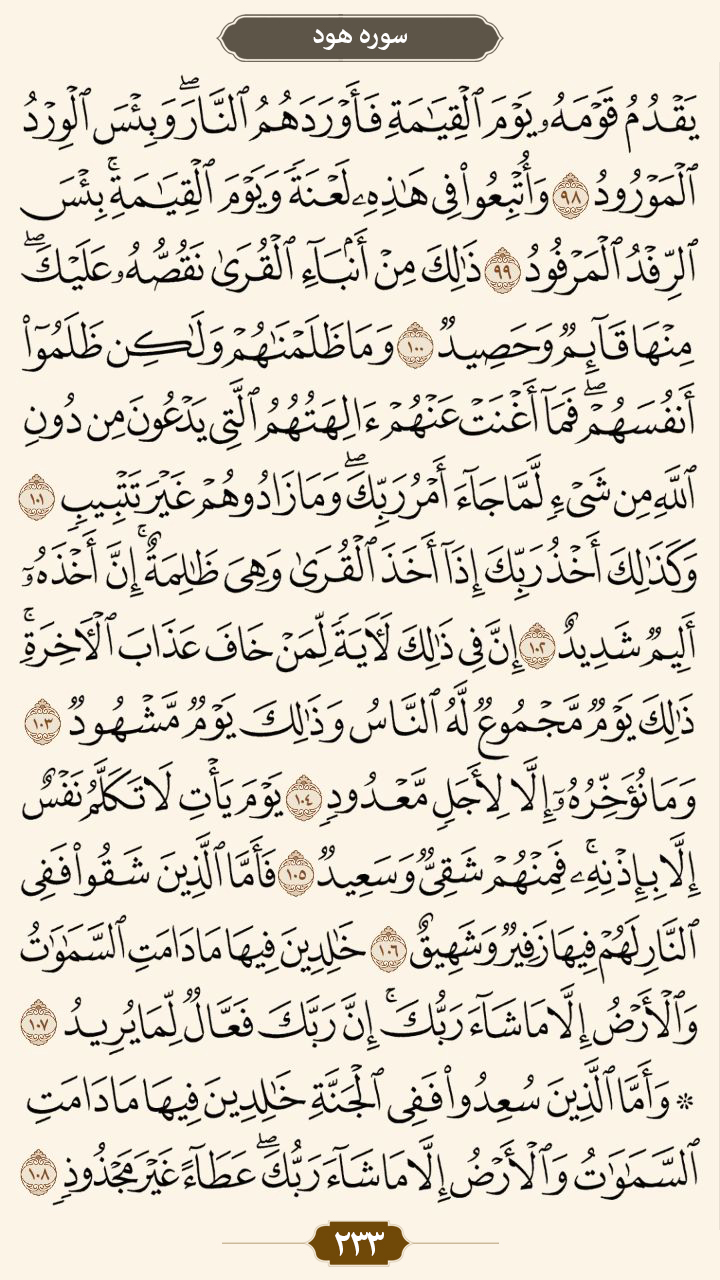 سوره هود
يَقْدُمُ قَوْمَهُۥ يَوْمَ ٱلْقِيَٰمَةِ فَأَوْرَدَهُمُ ٱلنَّارَۖ وَبِئْسَ ٱلْوِرْدُ
ٱلْمَوْرُودُ ٩٨ وَأُتْبِعُوا۟ فِى هَٰذِهِۦ لَعْنَةً وَيَوْمَ ٱلْقِيَٰمَةِۚ بِئْسَ
ٱلرِّفْدُ ٱلْمَرْفُودُ ٩٩ ذَٰلِكَ مِنْ أَنۢبَآءِ ٱلْقُرَىٰ نَقُصُّهُۥ عَلَيْكَۖ
مِنْهَا قَآئِمٌ وَحَصِيدٌ ١٠٠ وَمَا ظَلَمْنَٰهُمْ وَلَٰكِن ظَلَمُوٓا۟
أَنفُسَهُمْۖ فَمَآ أَغْنَتْ عَنْهُمْ ءَالِهَتُهُمُ ٱلَّتِى يَدْعُونَ مِن دُونِ
ٱللَّهِ مِن شَىْءٍ لَّمَّا جَآءَ أَمْرُ رَبِّكَۖ وَمَا زَادُوهُمْ غَيْرَ تَتْبِيبٍ ١٠١
وَكَذَٰلِكَ أَخْذُ رَبِّكَ إِذَآ أَخَذَ ٱلْقُرَىٰ وَهِىَ ظَٰلِمَةٌۚ إِنَّ أَخْذَهُۥٓ
أَلِيمٌ شَدِيدٌ ١٠٢ إِنَّ فِى ذَٰلِكَ لَءَايَةً لِّمَنْ خَافَ عَذَابَ ٱلْءَاخِرَةِۚ
ذَٰلِكَ يَوْمٌ مَّجْمُوعٌ لَّهُ ٱلنَّاسُ وَذَٰلِكَ يَوْمٌ مَّشْهُودٌ ١٠٣
وَمَا نُؤَخِّرُهُۥٓ إِلَّا لِأَجَلٍ مَّعْدُودٍ ١٠٤ يَوْمَ يَأْتِ لَا تَكَلَّمُ نَفْسٌ
إِلَّا بِإِذْنِهِۦۚ فَمِنْهُمْ شَقِىٌّ وَسَعِيدٌ ١٠٥ فَأَمَّا ٱلَّذِينَ شَقُوا۟ فَفِى
ٱلنَّارِ لَهُمْ فِيهَا زَفِيرٌ وَشَهِيقٌ ١٠٦ خَٰلِدِينَ فِيهَا مَا دَامَتِ ٱلسَّمَٰوَٰتُ
وَٱلْأَرْضُ إِلَّا مَا شَآءَ رَبُّكَۚ إِنَّ رَبَّكَ فَعَّالٌ لِّمَا يُرِيدُ ١٠٧
۞ وَأَمَّا ٱلَّذِينَ سُعِدُوا۟ فَفِى ٱلْجَنَّةِ خَٰلِدِينَ فِيهَا مَا دَامَتِ
ٱلسَّمَٰوَٰتُ وَٱلْأَرْضُ إِلَّا مَا شَآءَ رَبُّكَۖ عَطَآءً غَيْرَ مَجْذُوذٍ ١٠٨
٢٣٣